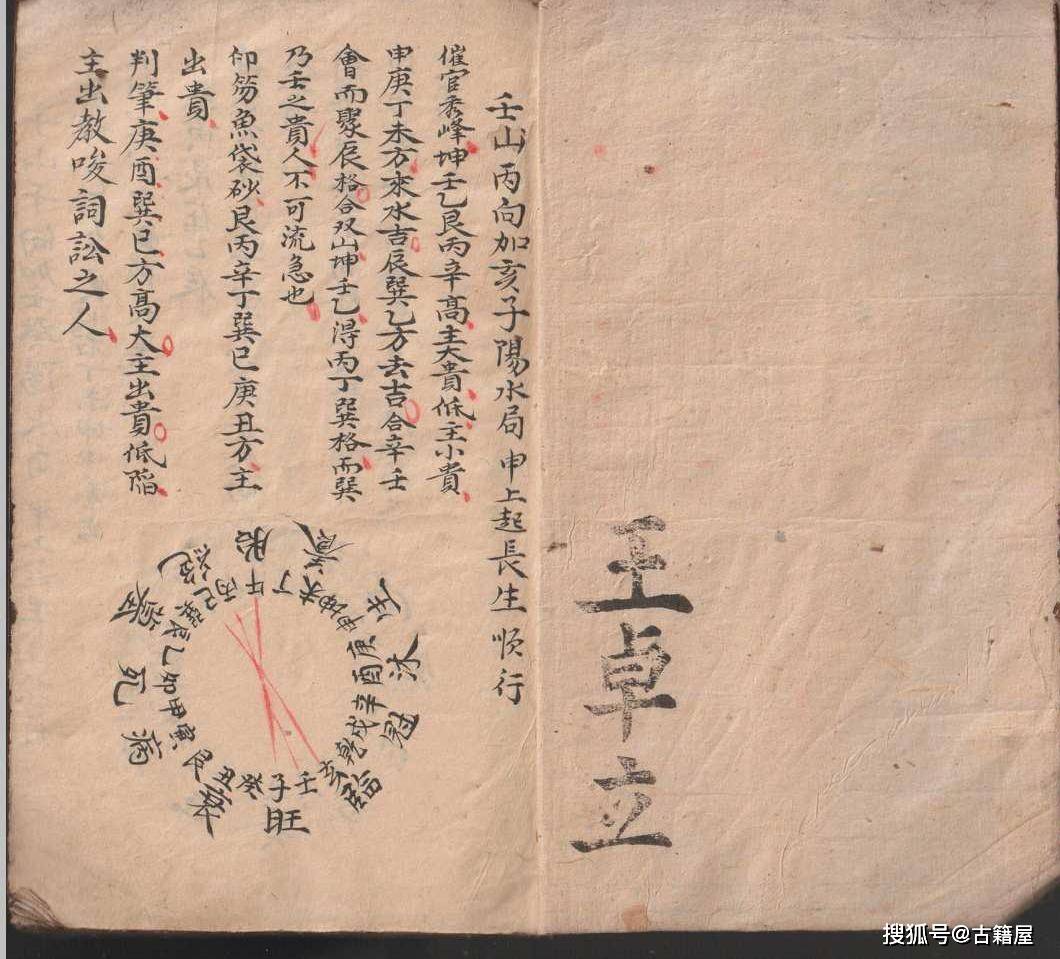 王卓立
壬山丙向加亥子陽水局申上起長生順行
催官秀峰坤壬乙艮丙辛高主大貴低主小貴
申庚丁未方來水吉辰巽乙方去吉合辛壬
會而聚辰格合双山坤壬乙得丙丁巽格而巽
乃壬之貴人不可流急也
印笏魚袋砂艮丙辛丁巽巳庚丑方主
出貴
判筆庚酉巽巳方高大主出貴低陷
主出教唆詞訟之人
胎養生沐冠臨旺衰病死絕
午丁未坤申庚酉辛戌乾亥壬子癸丑艮寅甲卯乙辰巽巳丙
搜狐号@古籍屋